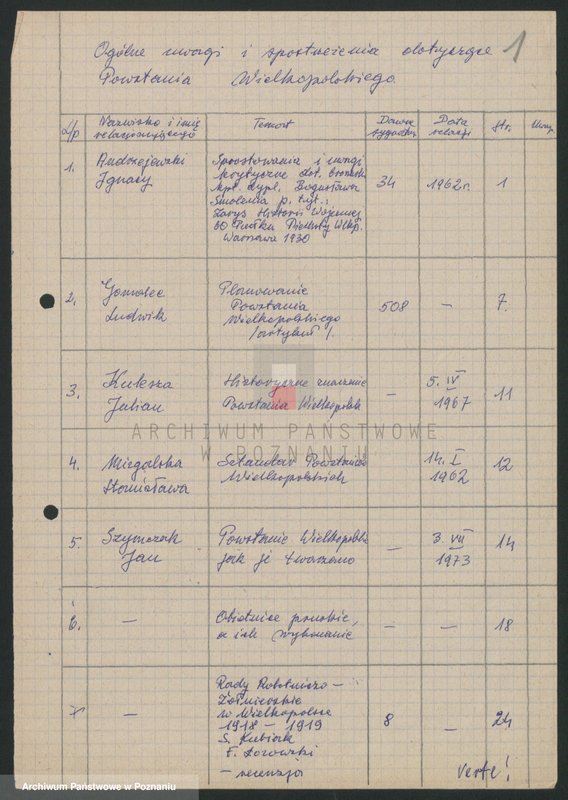 1
Ogólne uwagi i spostrzeżenia dotyczące
Powstania Wielkopolskiego.
L/p Nazwisko i imię relacjonującego Temat Dawna sygnatura Data relacji Str. Uwagi
1. Andrzejewski Ignacy
Sprostowania i uwagi
krytyczne dot.
kpt. dypl. Bogusława
Smolenia p. tyt.:
Zarys Historii Wojennej
60 Pułku Piechoty Wlkp.
Warszawa 1930
34 1962 r. 1
2. Gomolec Ludwik
Planowanie
Powstania
Wielkopolskiego
/artykuł/.
508 — 7.
3. Kuleska Julian
Historyczne znaczenie
Powstania Wielkopolsk
— 5. IV 1967 11
4. Miegalska Stanisława
Sztandar Powstańców
Wielkopolskich
14. I 1962 12
5. Szymczak Jan
Powstanie Wielkopolskie
jak je tworzono
— 3. VII 1973 14
6. —
Obietnice pruskie,
a ich wykonanie
— — 18
7. —
Rady Robotniczo —
Żołnierskie
w Wielkopolsce
1918 — 1919
S. Kubiak
F. Łozowski
— recenzja
8 — 24
verte!
ARCHIWUM PAŃSTWOWE
W POZNANIU
Archiwum Państwowe w Poznaniu